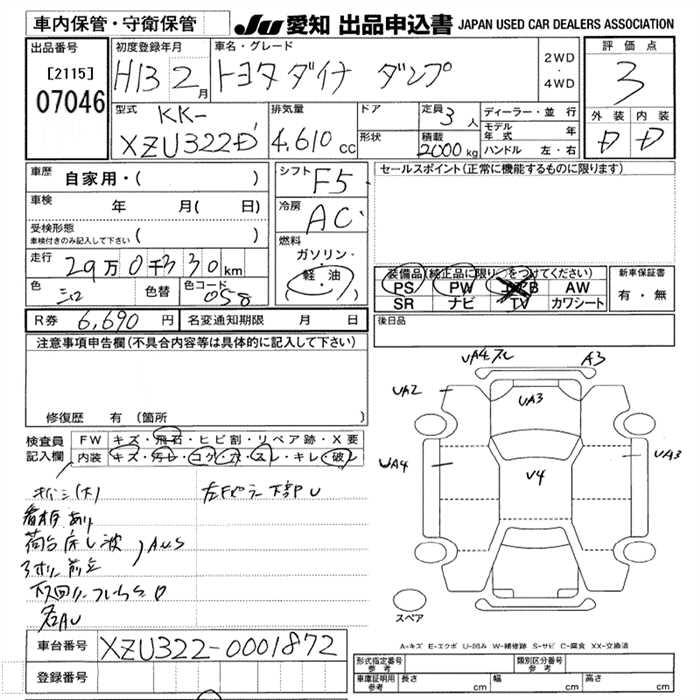 車内保管・守衛保管
JU 愛知 出品申込書 JAPAN USED CAR DEALERS ASSOCIATION
出品番号 初度登録年月 車名・グレード 評価点
[2115]
07046
H13 2月 トヨタ ダイナ ダンプ 2WD・4WD 3
型式 排気量 ドア 定員 3人 ディーラー・並行 外装 内装
KK-
XZU322D 4,610cc 形状 積載 2000kg モデル年式 年 D D
ハンドル 左・右
車歴 自家用・( ) シフト F5 セールスポイント(正常に機能するものに限ります)
車検 年 月(日) 冷房 AC
受検形態 車検付きのみ記入して下さい ( ) 燃料
ガソリン・軽・油
走行 29万0千330km
色 色替 色コード 058
装備品(純正品に限り○をつけてください) 新車保証書
PS PW AW 有・無
SR ナビ TV カワシート
R券 6,690円 名変通知期限 月 日 後日品
注意事項申告欄(不具合内容等は具体的に記入して下さい)
修復歴 有 (箇所 )
検査員記入欄 FW キズ・飛石・ヒビ割・リペア跡・X要
内装 キズ・汚レ・コゲ・穴・スレ・キレ・破レ
UA2
A3
UA3
UA4
V4
UA3
看板あり
スペア
A=キズ E=エクボ U=凹み W=補修跡 S=サビ C=腐食 XX=交換済
車台番号 XZU322-0001872
登録番号
形式指定番号 参考 類別区分番号 参考
車庫証明用 参考 長さ cm 幅 cm 高さ cm